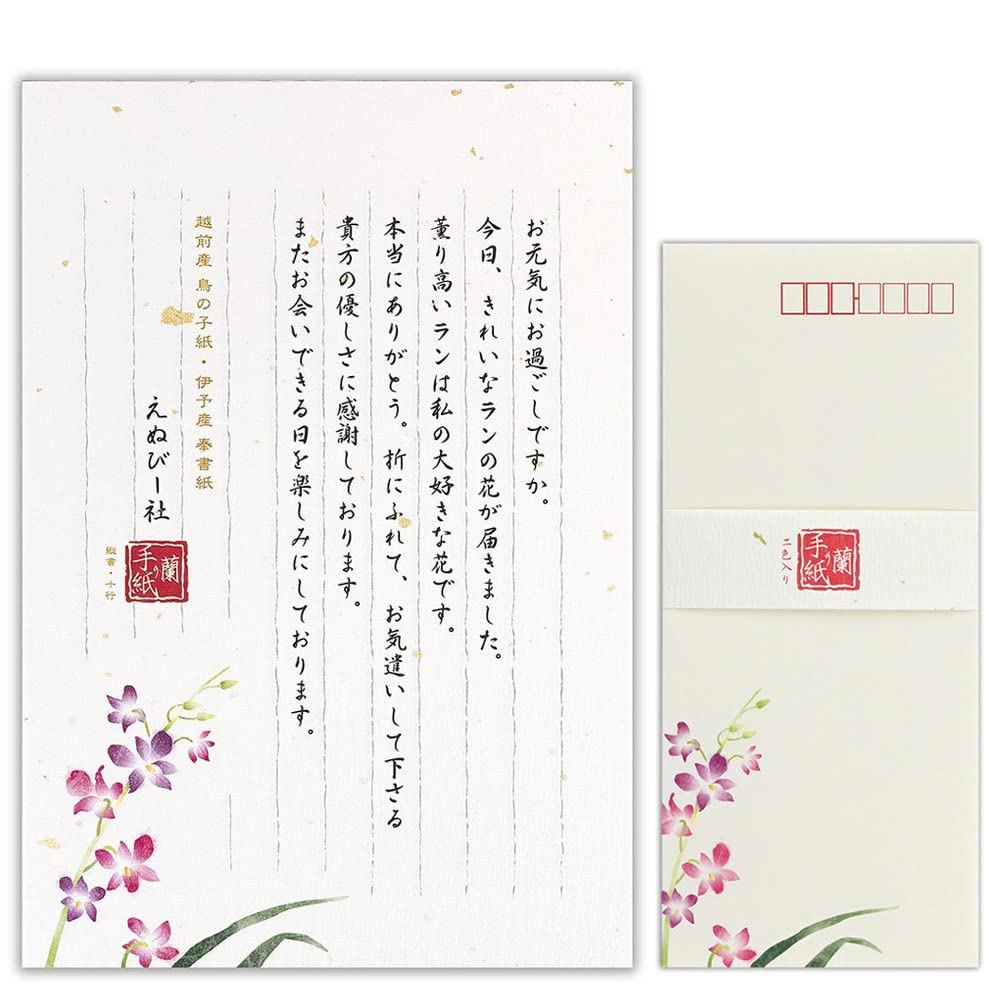 お元気にお過ごしですか。
今日、きれいなランの花が届きました。
薫り高いランは私の大好きな花です。
本当にありがとう。折にふれて、お気遣いして下さる
貴方の優しさに感謝しております。
またお会いできる日を楽しみにしております。
越前産 鳥の子紙・伊予産 奉書紙
えぬびー社
蘭の
手紙
縦書・十行
蘭の
手紙
二色入り